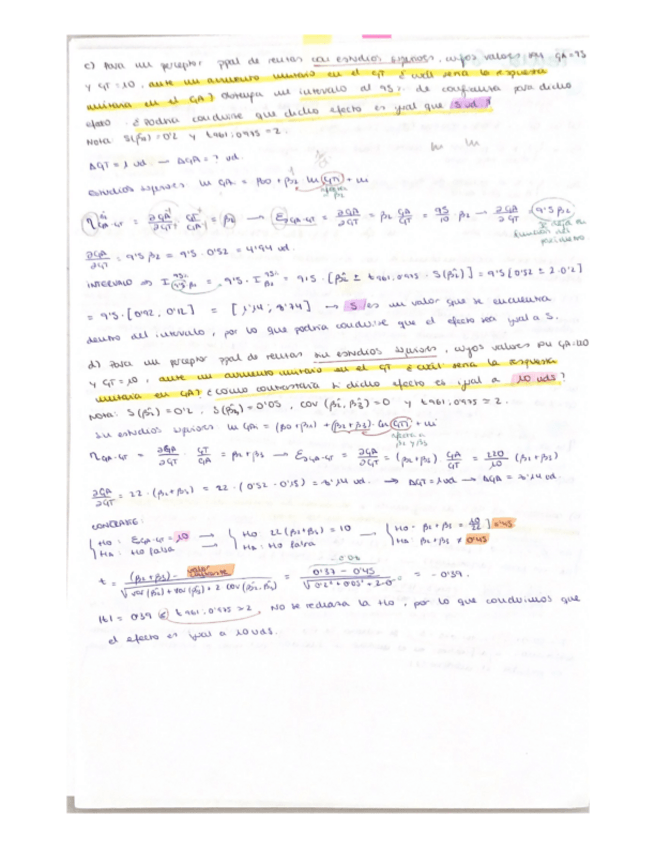 c) Para un perceptor ppal de rentas con estudios superiores, cuyos valores son GA=95
y GT=10, ante un aumento unitario en el GT ¿cuál sería la respuesta
unitaria en el GA? Obtenga un intervalo al 95% de confianza para dicho
efecto. ¿Podría concluirse que dicho efecto es igual que 5 ud?
Nota: S(β̂2)=0'2 y t961;0'975 = 2.
ΔGT = 1 ud → ΔGA = ? ud.
estudios superiores ln GA = β0 + β2 ln GT + u
η GA-GT = ∂GA/∂GT · GT/GA = β2 → ε GA-GT = ∂GA/∂GT = β2 GA/GT = 95/10 β2 → ∂GA/∂GT = 9'5 β2
∂GA/∂GT = 9'5 β2 = 9'5 · 0'52 = 4'94 ud.
INTERVALO ⇒ I 95% 9'5 β2 = 9'5 · I 95% β2 = 9'5 · [β̂2 ± t961;0'975 · S(β̂2)] = 9'5 [0'52 ± 2·0'2]
= 9'5 · [0'92, 0'12] = [1'14; 8'74] → 5 es un valor que se encuentra
dentro del intervalo, por lo que podría concluirse que el efecto sea igual a 5.
d) Para un perceptor ppal de rentas sin estudios superiores, cuyos valores son GA=220
y GT=10, ante un aumento unitario en el GT ¿cuál sería la respuesta
unitaria en GA? ¿Cómo contrastaría si dicho efecto es igual a 10 uds?
Nota: S(β̂2)=0'2, S(β̂3)=0'05, cov(β̂2,β̂3)=0 y t961;0'975 = 2.
Sin estudios superiores ln GA = (β0+β1) + (β2+β3)·ln GT + u
η GA-GT = ∂GA/∂GT · GT/GA = β2+β3 → ε GA-GT = ∂GA/∂GT = (β2+β3) GA/GT = 220/10 (β2+β3)
∂GA/∂GT = 22·(β2+β3) = 22·(0'52 - 0'15) = 8'14 ud. → ΔGT = 1 ud → ΔGA = 8'14 ud.
CONTRASTE:
H0: ε GA-GT = 10 → H0: 22(β2+β3) = 10 → H0: β2+β3 = 10/22 0'45
HA: H0 falsa → HA: H0 falsa HA: β2+β3 ≠ 0'45
t = (β2+β3) - valor / √var(β̂2)+var(β̂3)+2 cov(β̂2,β̂3) = 0'37 - 0'45 / √0'2²+0'05²+2·0 = -0'39.
|t| = 0'39 < t961;0'975 = 2, No se rechaza la H0, por lo que concluimos que
el efecto es igual a 10 uds.